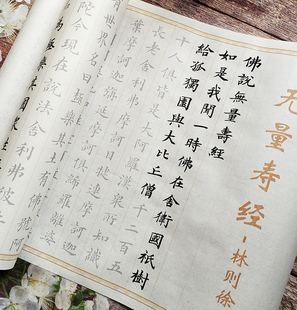 无量寿经-林则徐
佛說無量壽經
如是我聞一時佛在舍衛國祇樹
給孤獨園與大比丘僧千二百五
十人俱皆是大阿羅漢眾所知識
長老舍利弗摩訶目犍連摩訶迦
葉摩訶迦旃延摩訶俱絺羅離婆
有世界名曰極樂其土有佛號阿
陀今現在說法舍利弗彼